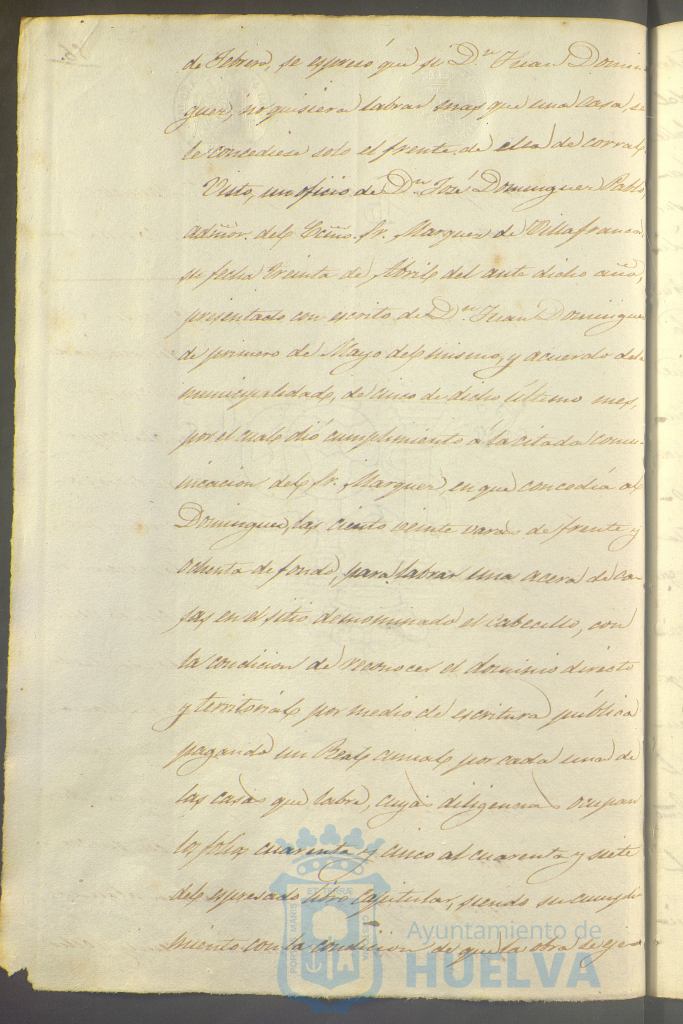 de Febrero, se espresó que si D.n Juan Domin-
guez, no quisiera labrar mas que una casa, se
le concediese solo el frente de ella de corral
Visto, un oficio de D.n José Dominguez Pablo,
admor. del Ecmo. Sr. Marques de Villafranca,
su fecha treinta de Abril del ante dicho año,
presentado con escrito de D.n Juan Dominguez
de primero de Mayo del mismo, y acuerdo de la
municipalidad, de cinco de dicho último mes,
por el cual dió cumplimiento á la citada comu-
nicacion del Sr. Marques, en que concedia al
Dominguez, las ciento veinte varas de frente y
ochenta de fondo, para labrar una acera de ca-
sas en el sitio denominado el cabecillo, con
la condicion de reconocer el dominio directo
y territorial por medio de escritura pública
pagando un Real anual por cada una de
las casas que labre, cuyas diligencias ocupan
los fólios cuarenta y cinco al cuarenta y siete
del espresado libro capitular, siendo su cumpli-
miento con la condicion de que la obra se eje-
Ayuntamiento de
HUELVA